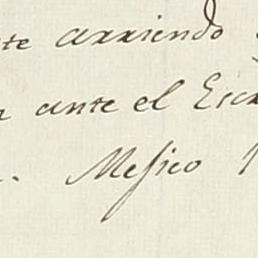 te arriendo
ante el Escr
Mesico